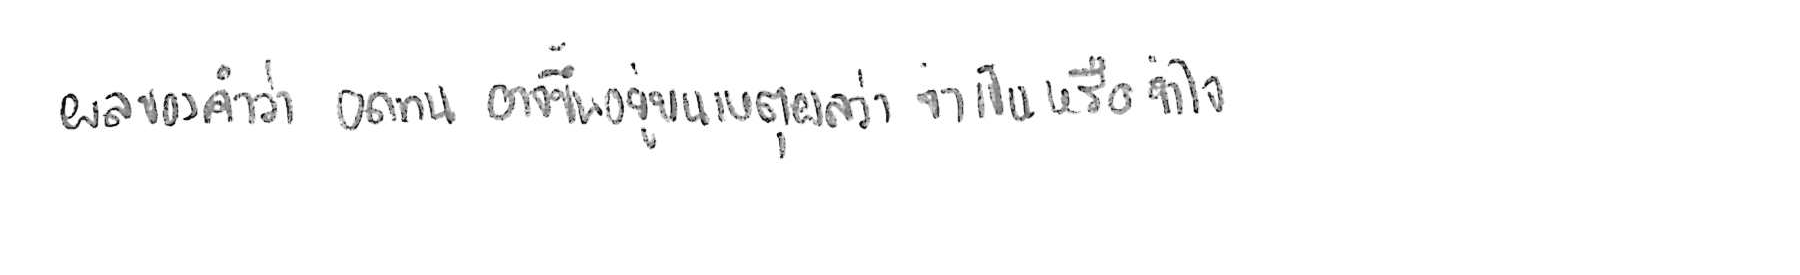 ผลของคำว่า อดทน อาจขึ้นอยู่บนเหตุผลว่า จำเป็นหรือจำใจ